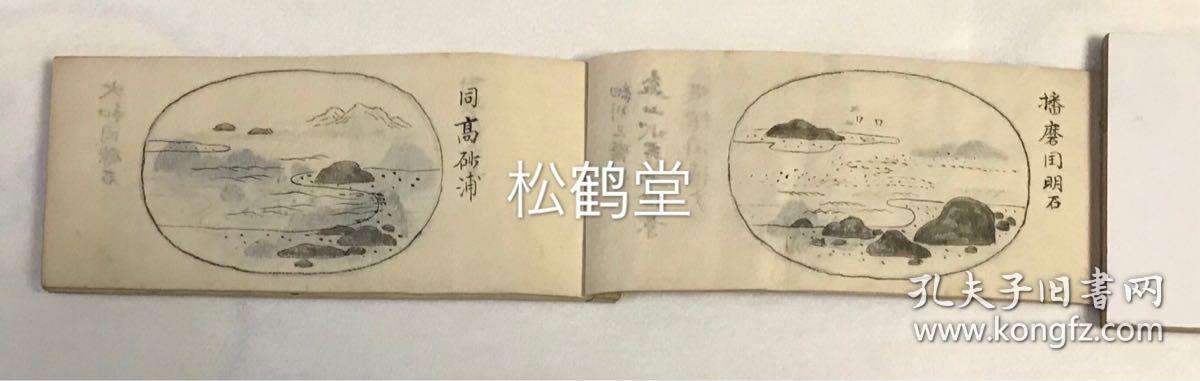 播磨囯明石
同高砂浦
松鹤堂
孔夫子旧書网
www.kongfz.com